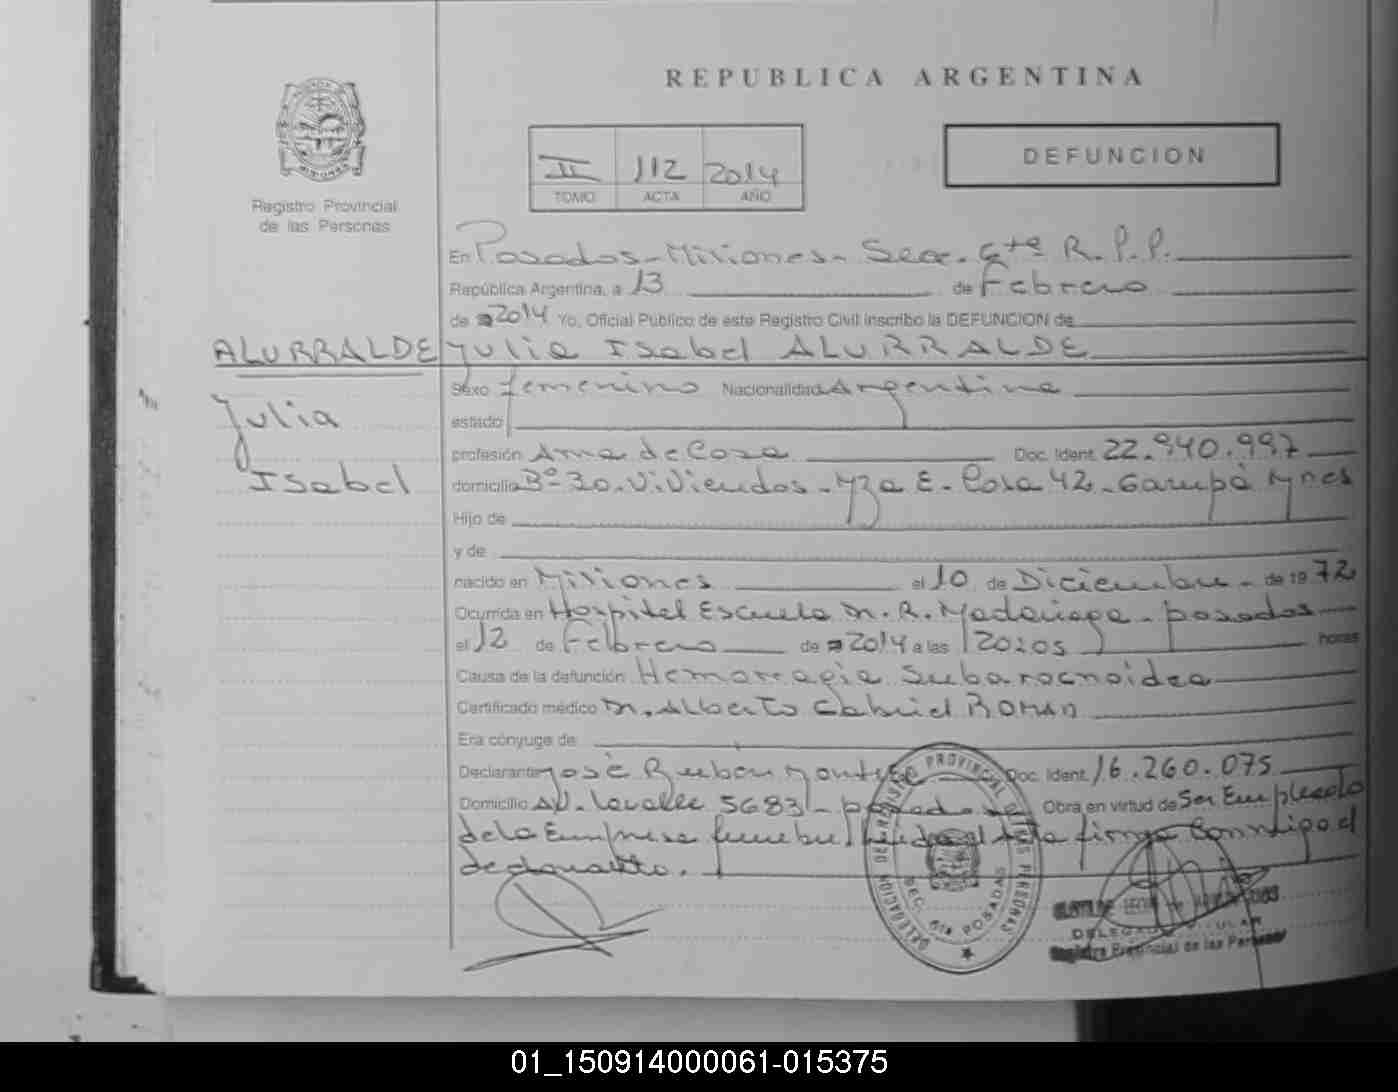 REPUBLICA ARGENTINA
DEFUNCION
II 112 2014
TOMO ACTA AÑO
Registro Provincial
de las Personas
En Posadas - Misiones - Secc. 6ta R.P.P.
República Argentina, a 13 de Febrero
de 2014 Yo, Oficial Público de este Registro Civil inscribo la DEFUNCION de
ALURRALDE Julia Isabel ALURRALDE
Julia
Isabel
Sexo femenino Nacionalidad Argentina
estado
profesión Ama de Casa Doc. Ident. 22.940.997
domicilio Bº 30. Viviendas - Mza E. Casa 42 - Garupá Mnes
Hijo de
y de
nacido en Misiones el 10 de Diciembre - de 19 72
Ocurrida en Hospital Escuela Dr. R. Madariaga - posadas
el 12 de Febrero de 2014 a las 20:05 horas
Causa de la defunción Hemorragia Subaracnoidea
Certificado médico Dr. Alberto Gabriel ROMAN
Era cónyuge de
Declarante José Ruben Doc. Ident. 16.260.075
Domicilio Av. Lavalle 5683 - posadas Obra en virtud de Ser Empleado
de la Empresa funebre firma Conmigo el
declarante.
DELEGACION DEL REGISTRO PROVINCIAL DE LAS PERSONAS
SEC. 6ta POSADAS
DELEGADA TITULAR
Registro Provincial de las Personas
01_150914000061-015375